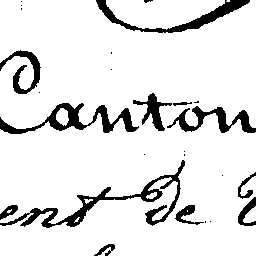 Canton
ent de